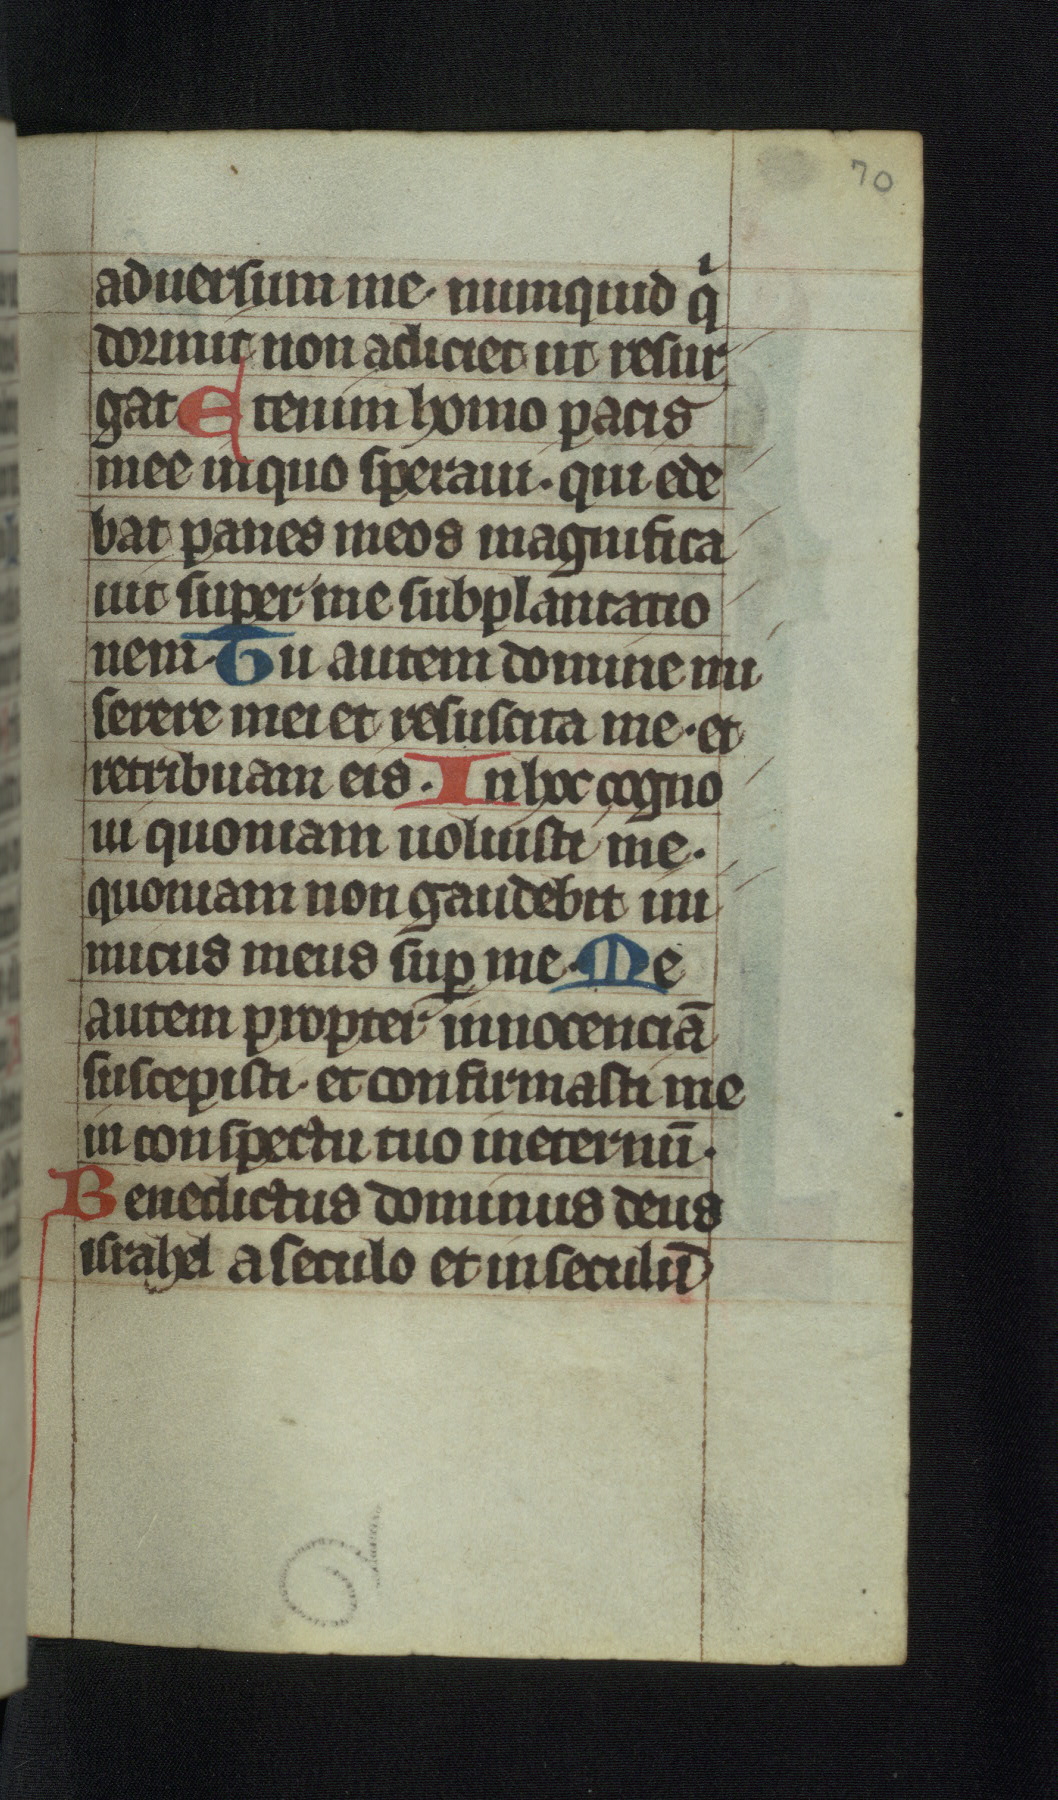 70
aduersum me· numquid qͥ
dormit non adiciet ut resur
gat Etenim homo pacis
mee in quo speraui· qui ede
bat panes meos magnifica
uit super me subplantatio
nem· Tu autem domine mi
serere mei et resuscita me· et
retribuam eis· In hoc cogno
ui quoniam uoluisti me·
quoniam non gaudebit ini
micus meus suꝑ me· Me
autem propter innocenciā
suscepisti· et confirmasti me
in conspectu tuo in eternū·
Benedictus dominus deus
israhel a seculo et in seculū